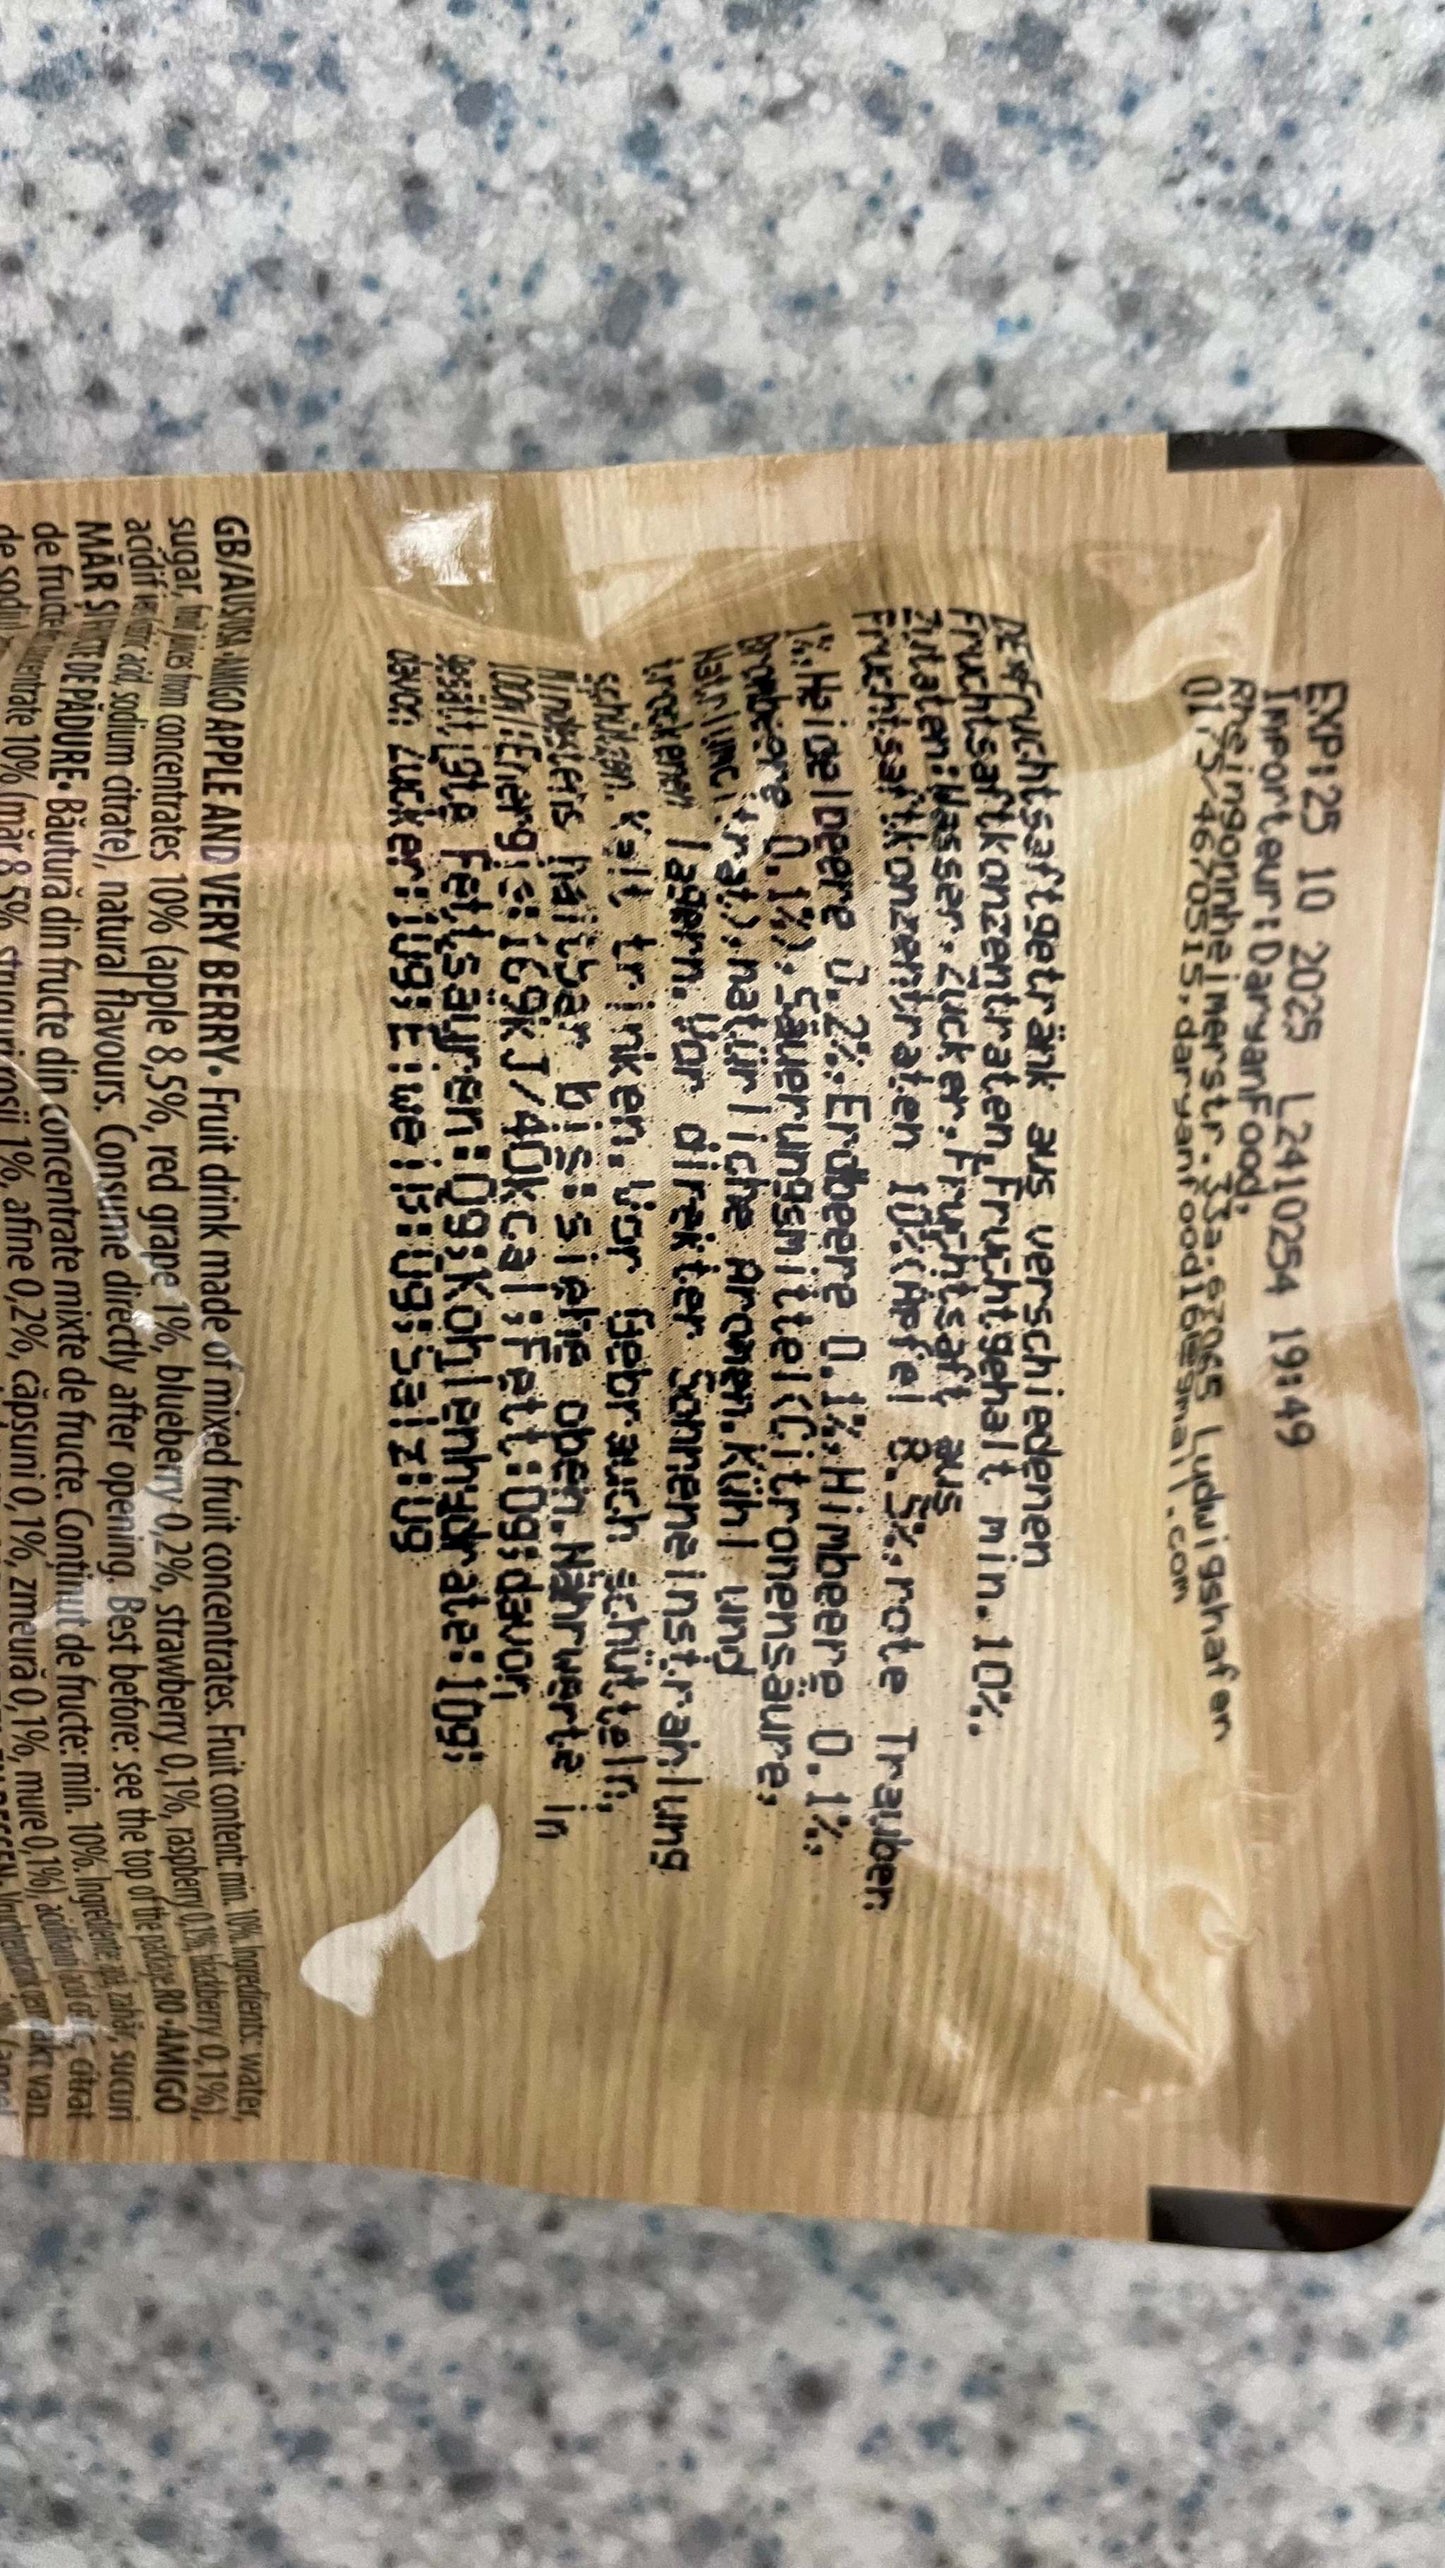 EXP:25 10 2025 L2410254 19:49
Importeur:DaryanFood,
Rheingonnheimerstr.33a.67065 Ludwigshafen
0175/4670515,daryanfood16@gmail.com
DE *Fruchtsaftgetränk aus verschiedenen
Fruchtsaftkonzentraten,Fruchtgehalt min.10%.
Zutaten:Wasser,Zucker,Fruchtsaft aus
Fruchtsaftkonzentraten 10%(Apfel 8.5%,rote Trauben
1%,Heidelbeere 0.2%,Erdbeere 0.1%,Himbeere 0.1%,
Brombeere 0.1%),Säuerungsmittel(Citronensäure,
Natriumcitrat),natürliche Aromen.Kühl und
trocken lagern. Vor direkter Sonneneinstrahlung
schützen. Kalt trinken. Vor Gebrauch schütteln,
Mindestens haltbar bis:siehe oben.Nährwerte in
100ml:Energie:169kJ/40kcal;Fett:0g;davon
gesättigte Fettsäuren:0g;Kohlenhydrate:10g;
davon Zucker:10g;Eiweiß:0g;Salz:0g
GB/AUS/USA •AMIGO APPLE AND VERY BERRY• Fruit drink made of mixed fruit concentrates. Fruit content: min. 10%. Ingredients: water,
sugar, fruit juices from concentrates 10% (apple 8,5%, red grape 1%, blueberry 0,2%, strawberry 0,1%, raspberry 0,1%, blackberry 0,1%),
acidifiers (citric acid, sodium citrate), natural flavours. Consume directly after opening. Best before: see the top of the package. RO •AMIGO
MĂR ȘI FRUCTE DE PĂDURE• Băutură din fructe din concentrate mixte de fructe. Conținut de fructe: min. 10%. Ingrediente: apă, zahăr, sucuri
de fructe concentrate 10% (măr 8,5%, struguri roșii 1%, afine 0,2%, căpșuni 0,1%, zmeură 0,1%, mure 0,1%), acidifianți (acid citric, citrat
de sodiu)